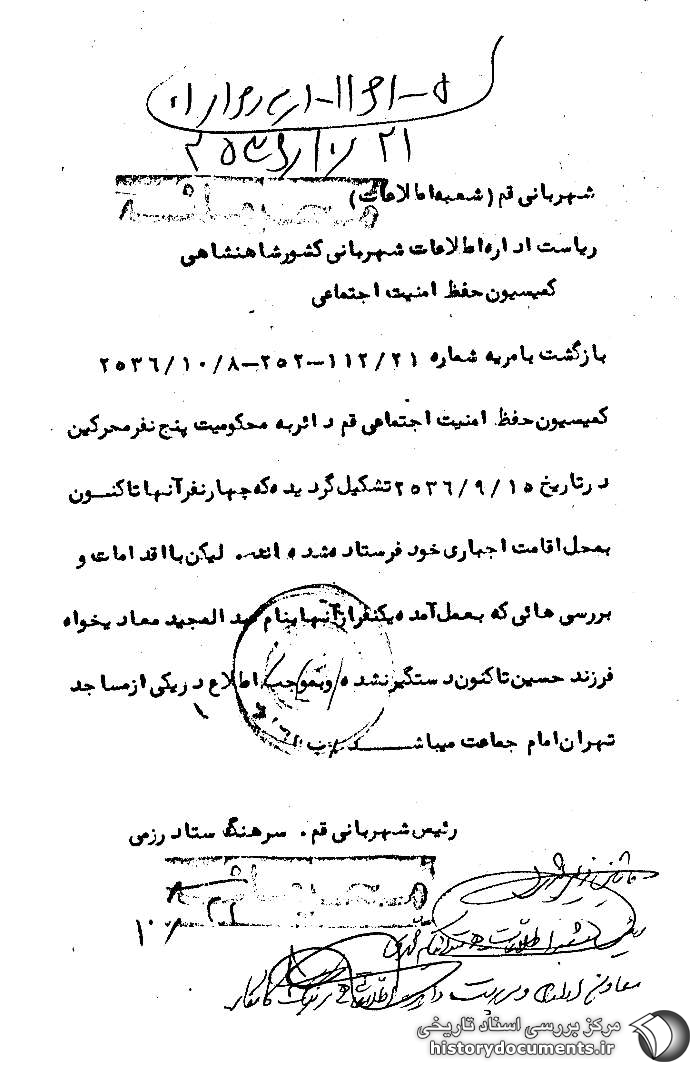 ۲۵۳۶/۱۰/۲۱
شهربانی قم (شعبه اطلاعات)
محرمانه
ریاست اداره اطلاعات شهربانی کشور شاهنشاهی
کمیسیون حفظ امنیت اجتماعی
بازگشت بامریه شماره ۲۱/۱۱۲–۲۵۲–۲۵۳۶/۱۰/۸
کمیسیون حفظ امنیت اجتماهی قم دائر به محکومیت پنج نفر محرکین
در تاریخ ۲۵۳۶/۹/۱۵ تشکیل گردیده که چهار نفر آنها تاکنون
بمحل اقامت اجباری خود فرستاده شده اند. لیکن با اقدامات و
بررسی هائی که بعمل آمده یکنفر از آنها بنام عبدالمجید معادیخواه
فرزند حسین تاکنون دستگیر نشده و بموجب اطلاع در یکی از مساجد
تهران امام جماعت میباشد
رئیس شهربانی قم. سرهنگ ستاد رزمی
محرمانه
مرکز بررسی اسناد تاریخی
historydocuments.ir